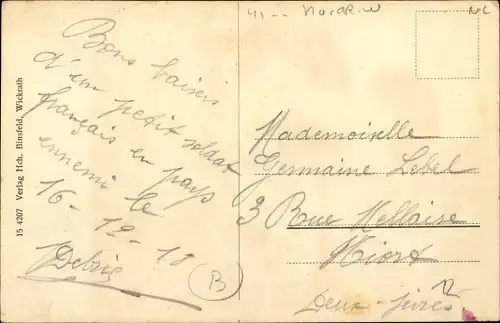 41 -- Nordrh W
NL
Bons baisers
d'un petit soldat
français en pays
ennemi le
16-12-18
Mademoiselle
Germaine Lebel
3 Rue Mellaise
Niort
Deux-Sèvres
12
B
15 4207 Verlag Hch. Binsfeld, Wickrath